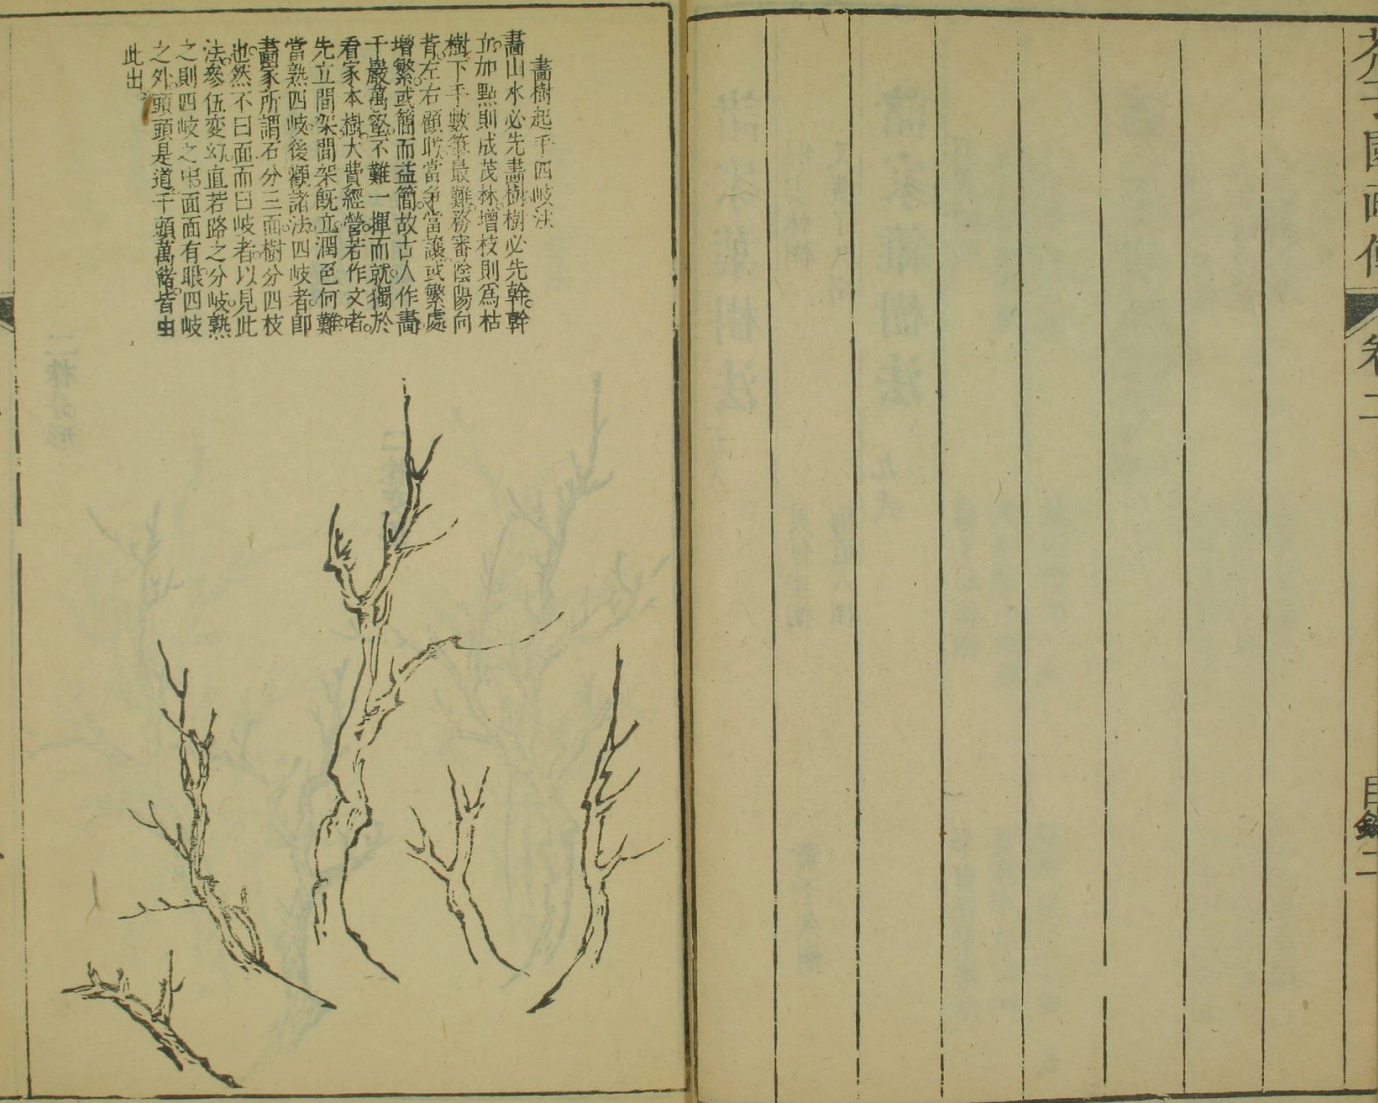 芥子園画傳
卷二
目錄二
畫樹起手四岐法
畫山水必先畫樹樹必先幹幹
立加點則成茂林增枝則爲枯
樹下手數筆最難務審陰陽向
背左右顧盼當爭當讓或繁處
增繁或簡而益簡故古人作畫
千巖萬壑不難一揮而就獨於
看家本樹大費經營若作文者
先立間架間架旣立潤色何難
當熟四岐後觀諸法四岐者卽
畫家所謂石分三面樹分四枝
也然不曰面而曰岐者以見此
法參伍変幻直若路之分岐熟
之則四岐之中面面有眼四岐
之外頭頭是道千頭萬緒皆由
此出